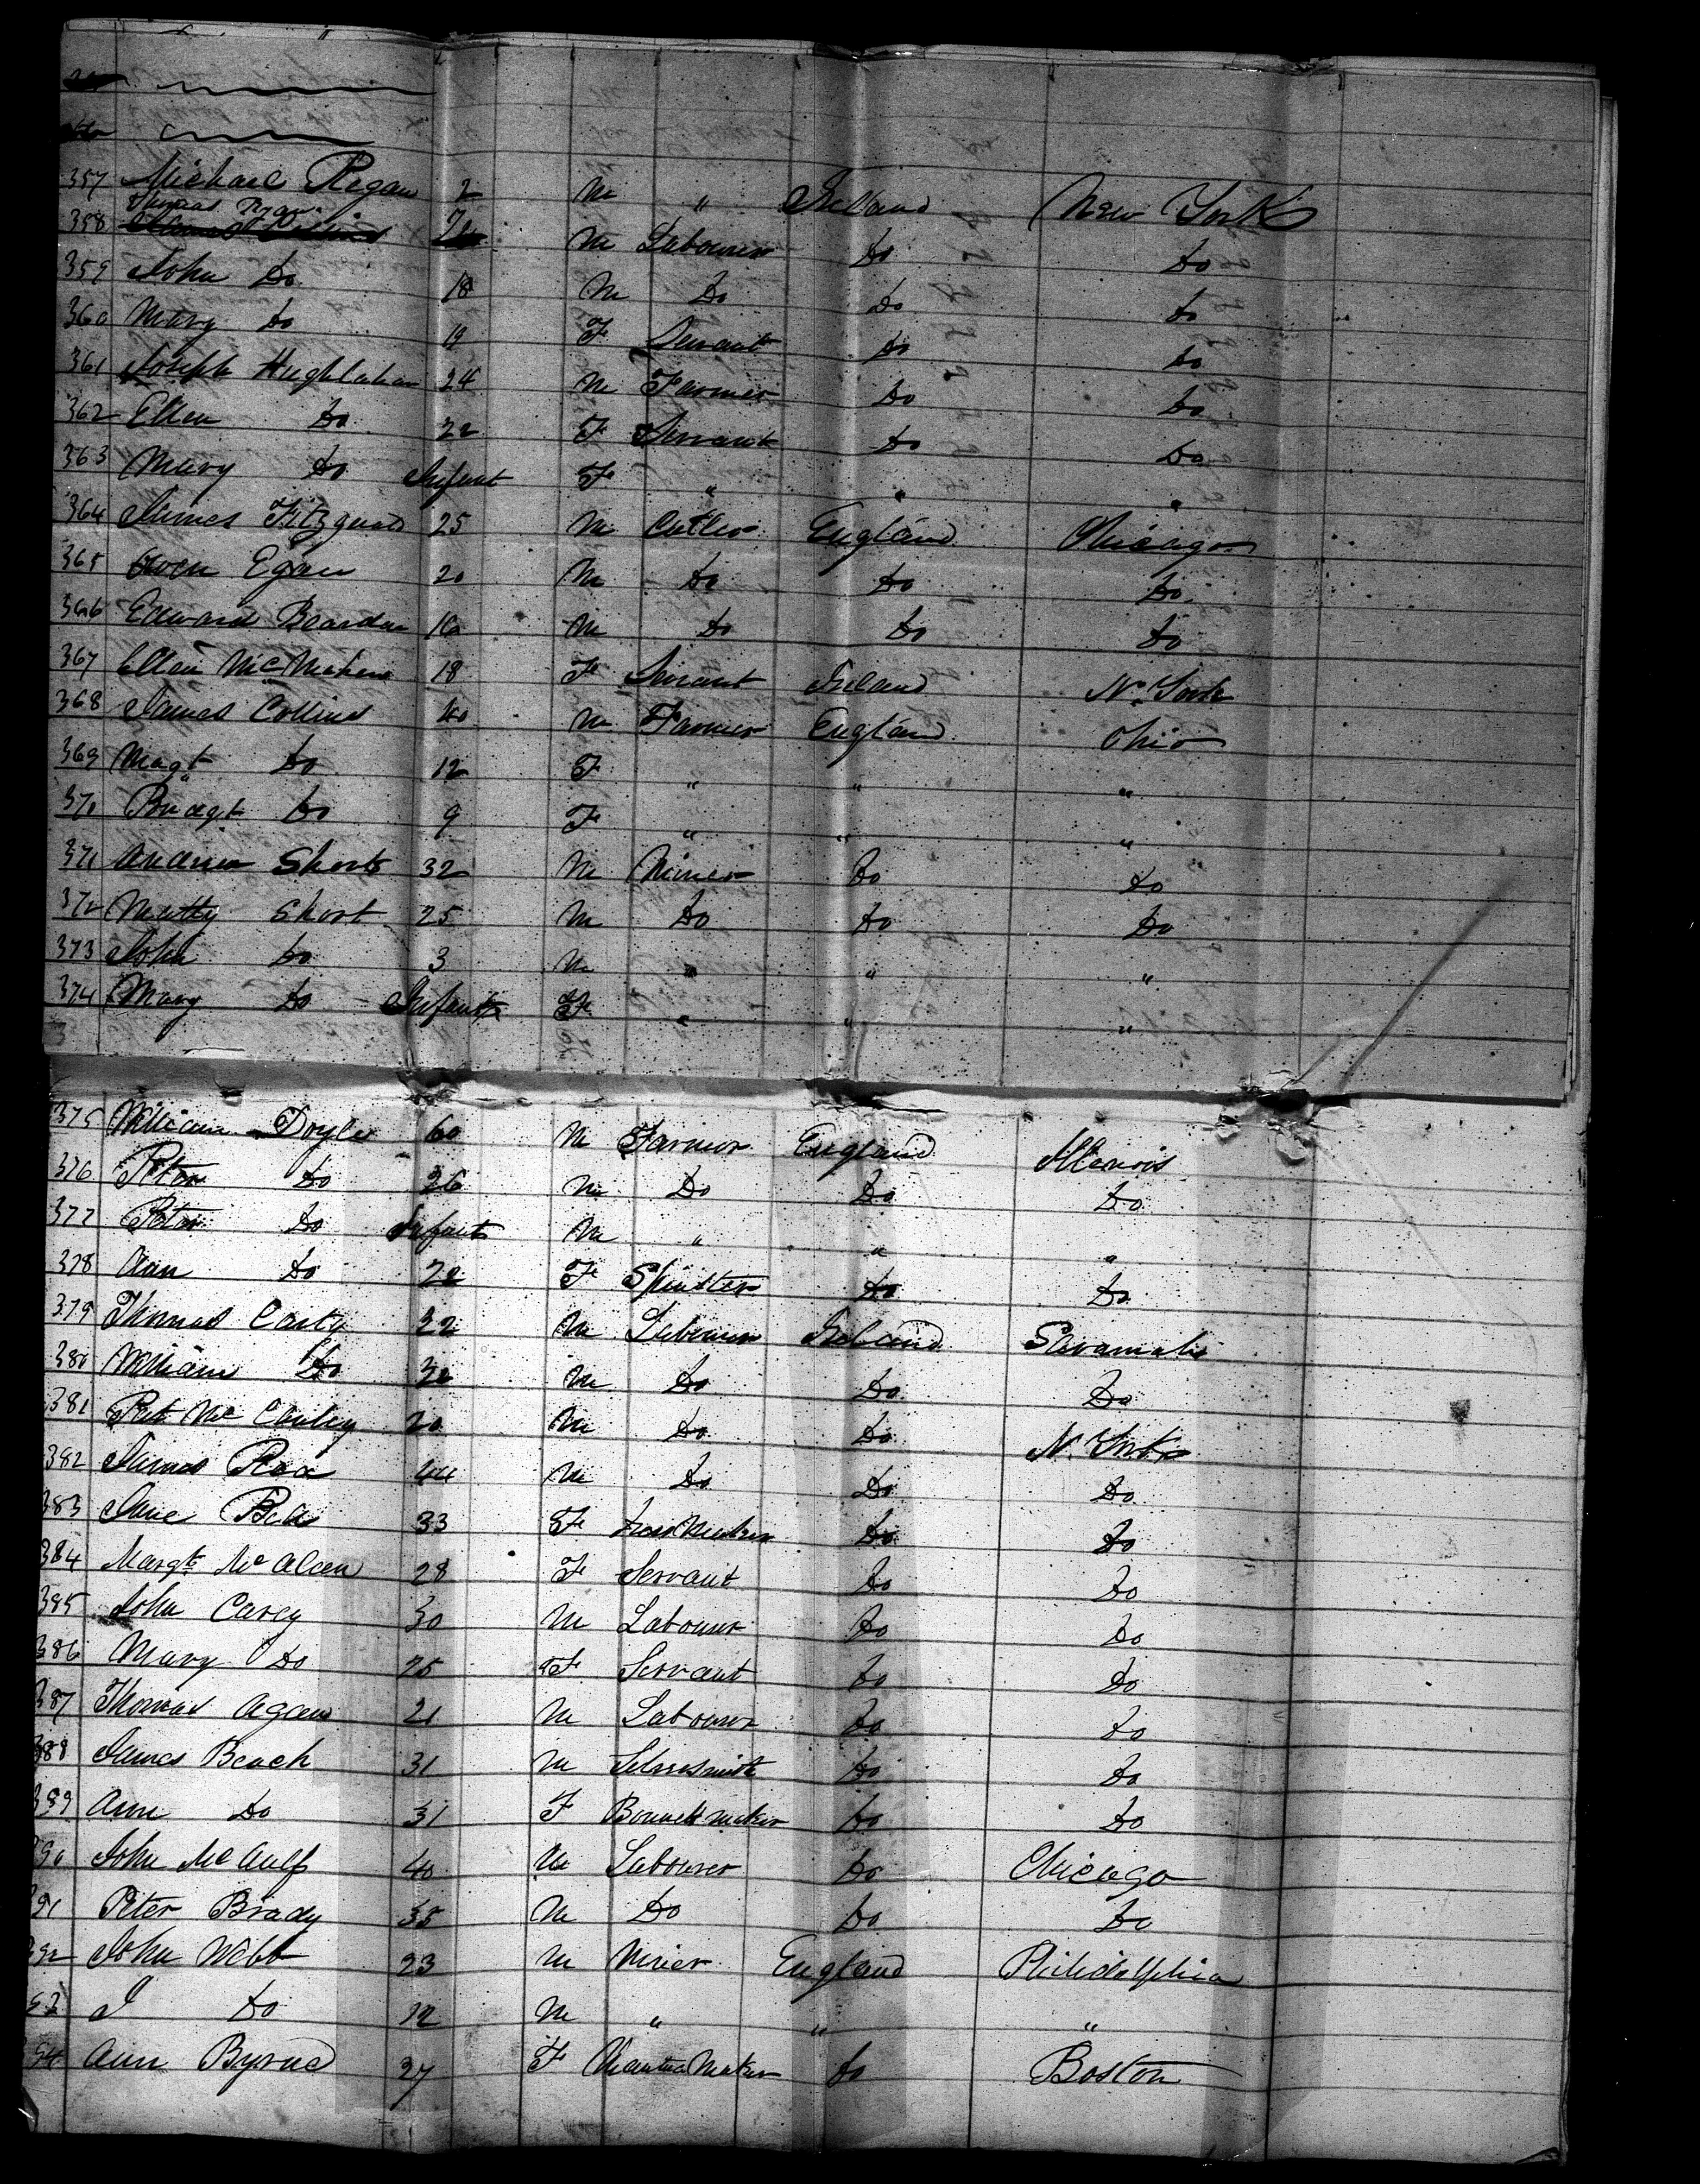 357 Michael Regan 2 M " Ireland New York
Thomas Regan
358 M Labourer Do Do
359 John Do 18 M Do Do Do
360 Mary Do 19 F Servant Do Do
361 Joseph Hughlahan 24 M Farmer Do Do
362 Ellen Do 22 F Servant Do Do
363 Mary Do Infant F " " "
364 James Fitzgerald 25 M Cutler England Chicago
365 Owen Egan 20 M Do Do Do
366 Edward Bearden 16 M Do Do Do
367 Ellen McMahon 18 F Servant Ireland N. York
368 James Collins 40 M Farmer England Ohio
369 Magt Do 12 F " " "
370 Bridgt Do 9 F " " "
371 Andrew Short 32 M Miner Do Do
372 Matty Short 25 M Do Do Do
373 John Do 3 M " " "
374 Mary Do Infant F " " "
3
375 William Doyle 60 M Farmer England Illenois
376 Peter Do 26 M Do Do Do
377 Peter Do Infant M " " "
378 Ann Do 22 F Spinster Do Do
379 Thomas Carty 22 M Labourer Ireland Savannah
380 William Do 32 M Do Do Do
381 Pat Mc Cauley 20 M Do Do N. York
382 James Rea 44 M Do Do Do
383 Jane Rea 33 F Dress Maker Do Do
384 Margt McAleen 28 F Servant Do Do
385 John Carey 30 M Labourer Do Do
386 Mary Do 25 F Servant Do Do
387 Thomas Agan 21 M Labourer Do Do
388 James Beach 31 M Silversmith Do Do
389 Ann Do 31 F Bonnett maker Do Do
90 John McAulf 40 M Labourer Do Chicago
91 Peter Brady 35 M Do Do Do
392 John Webb 23 M Minier England Philidalphia
93 J Do 12 M " " "
94 Ann Byrne 27 F Mantua Maker Do Boston